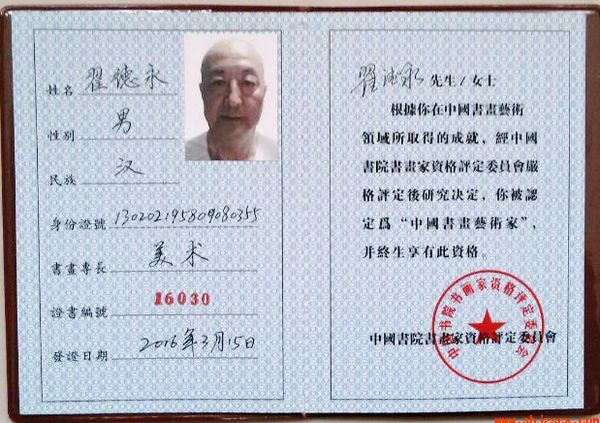 姓名 翟德永
性别 男
民族 汉
身份證號 130202195809080355
書畫專長 美术
證書編號 16030
發證日期 2016年3月15日
翟德永 先生/女士
根據你在中國書畫藝術
領域所取得的成就，經中國
書院書畫家資格評定委員會嚴
格評定後研究決定，你被認
定爲“中國書畫藝術家”，
并終生享有此資格。
中國書院書畫家資格評定委員會
中国书院书画家资格评定委员会